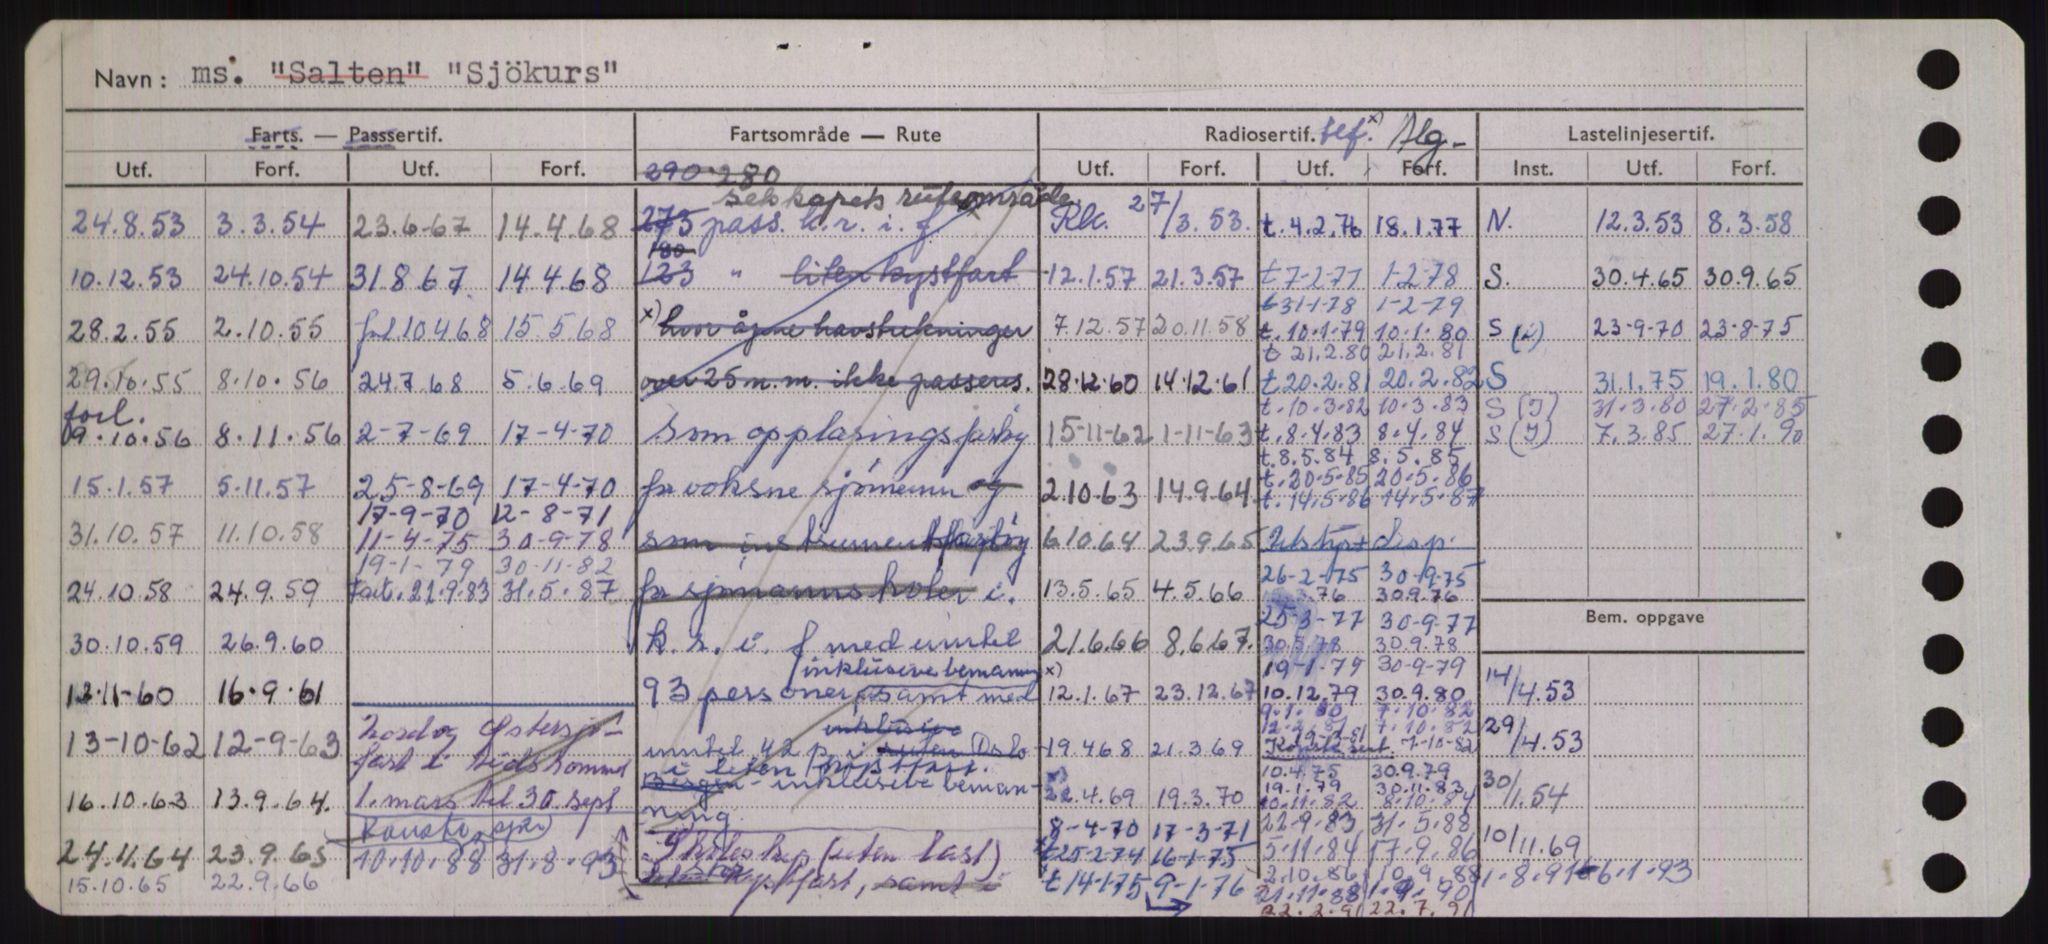 Navn: ms. "Salten" "Sjökurs"
Farts. — Passsertif. Fartsområde — Rute Radiosertif. telf. x) Alg- Lastelinjesertif.
Utf. Forf. Utf. Forf. 290 280 Utf. Forf. Utf. Forf. Inst. Utf. Forf.
selskapets ruteområde
24.8.53 3.3.54 23.6-67 14.4.68 275 pass. k.r. i. f Rk. 27/3.53. t.4.2.76 18.1.77 N. 12.3.53 8.3.58
180
10.12.53 24.10.54 31.8.67 14.4.68 123 " liten kystfart 12.1.57 21.3.57 t 7-2-77 1-2-78 S. 30.4.65 30.9.65
t 31-1-78 1-2-79
28.2.55 2.10.55 10.4.68 15.5.68 x) hvor åpne havstrekninger 7.12.57 20.11.58 t.10.1.79 10.1.80 S 23-9-70 23-8-75
t 21.2.80 21.2.81
29.10.55 8.10.56 24.7.68 5.6.69 over 25 n.m. ikke passeres. 28.12.60 14.12.61 t.20.2.81 20.2.82 S 31.1.75 19.1.80
forl. t.10.3.82 10.3.83 S (I) 31.3.80 27.2.85
9.10.56 8.11.56 2-7-69 17-4-70 som opplæringsfartøy 15-11-62 1-11-63 t.8.4.83 8.4.84 S (I) 7.3.85 27.1.90
t.8.5.84 8.5.85
15.1.57 5.11.57 25-8-69 17-4-70 for voksne sjömenn og 2.10.63 14.9.64 t.20.5.85 20.5.86
17-9-70 12-8-71 t.14.5.86 14.5.87
31.10.57 11.10.58 11-4-75 30-9-78 som instrumentfartøy 6.10.64 23.9.65 Utstyr disp.
19-1-79 30-11-82 26-2-75 30-9-75
24.10.58 24.9.59 Fart. 22.9.83 31.5.87 for sjømannsskoler i. 13.5.65 4.5.66 3.76 30.9.76
25-3-77 30-9-77 Bem. oppgave
30.10.59 26.9.60 k. s. i. f med inntil 21.6.66 8.6.67. 30.5.78 30.9.78
inklusive bemanning x) 19-1-79 30-9-79
12-11-60 16.9.61 93 personer, samt med 12.1.67 23.12.67 10.12.79 30.9.80 14/4.53
Nord og Østersjö- inklusive 9.1.80 7.10.82
13-10-62 12-9-63 fart i tidsrommet inntil 42 p. i ruten Oslo 19.4.68 21.3.69 7-10-82 29/4.53
i liten kystfart. 10.4.75 30.9.79
16.10.63 13.9.64. 1. mars til 30 sept Bergen - inklusive beman- 22.4.69 19.3.70 19.1.79 30.11.83 30/1.54
ning. 10.11.82 8.10.84
8-4-70 17-3-71 22-9.83 31.5.88
24.11.64 23.9.65 10.10.88 31.8.93 Skoleskip (uten last) 25-2-74 16-1-75 5.11.84 17.9.86 10/11.69
15.10.65 22.9.66 Kystfart, samt i t 14-1-75 9-1-76 2.10.86 10.9.88 1.8.91 6.1.93
21.11.88 1.9.90
22.2.91 22.7.91